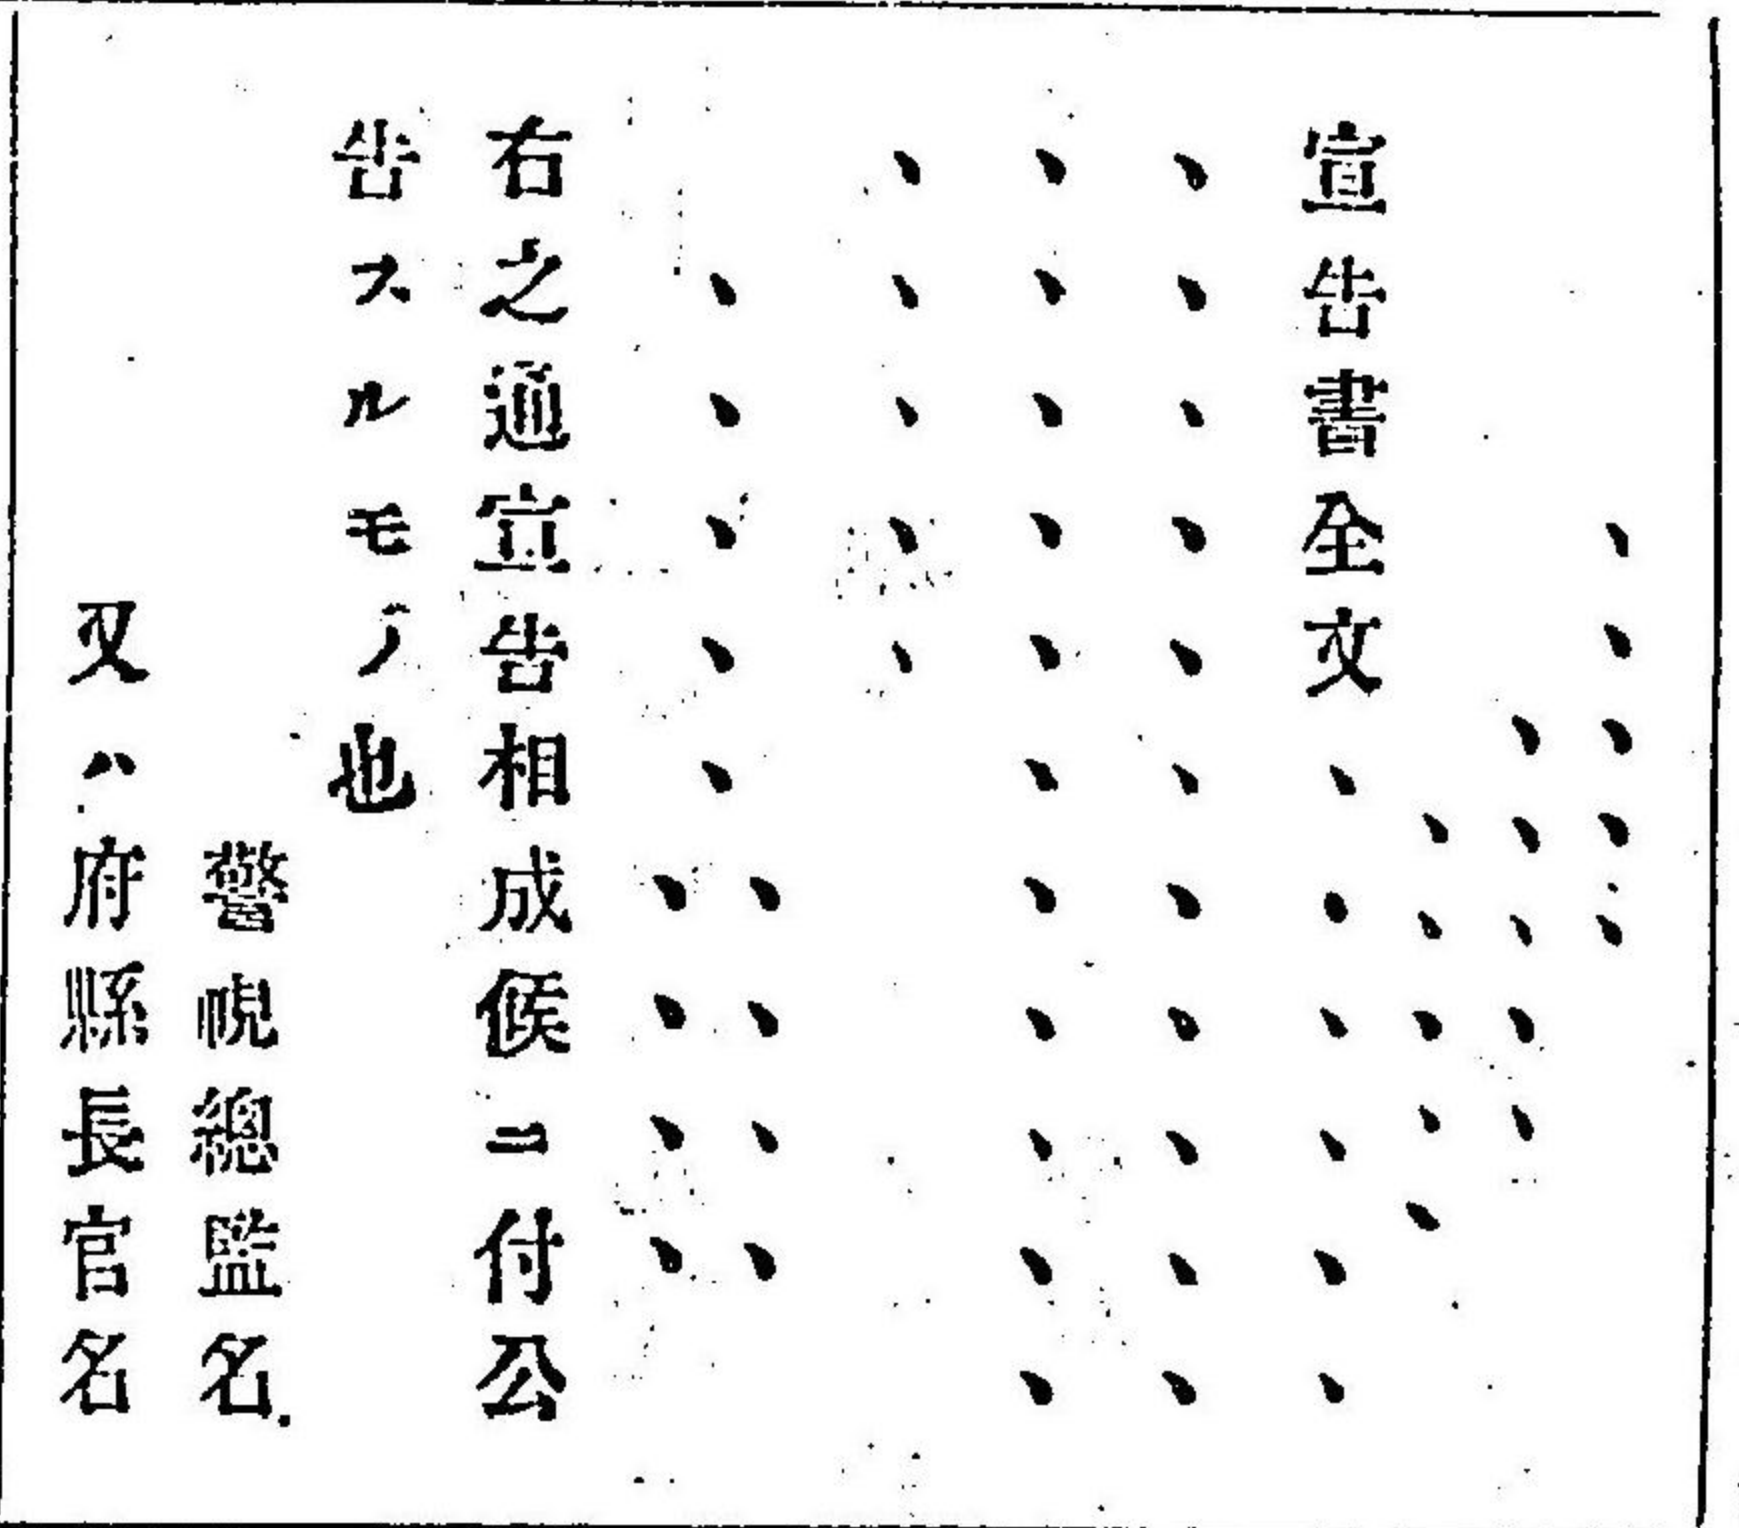 、、、、、
、、、、、
、、、、、
宣告書全文、、、、、、
、、、、、、、、、、、
、、、、、、、、、、、
、、、、、
、、、、
、、、、、
、、、、
右之通宣告相成候ニ付公
告スルモノ也
警視總監名
又ハ府縣長官名